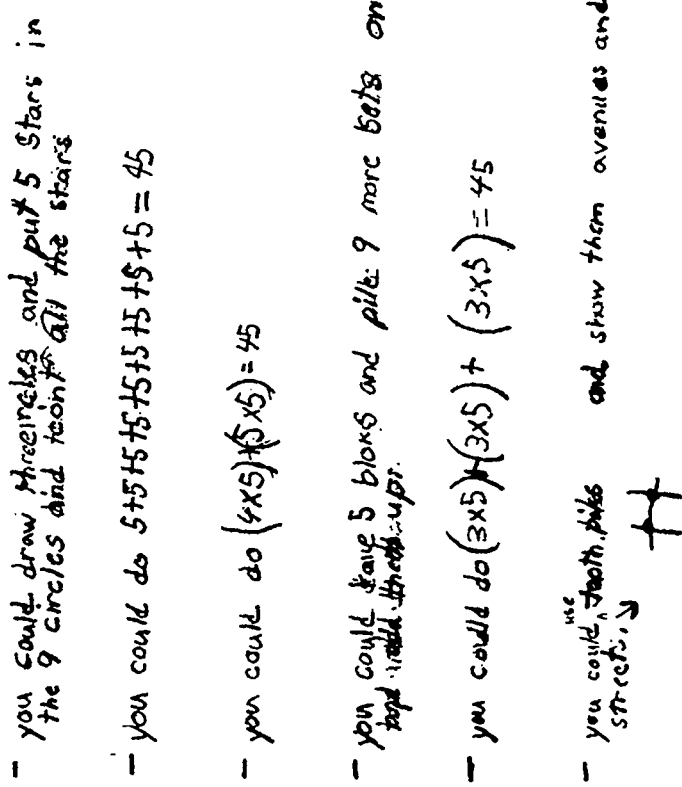 - you could draw three circles and put 5 stars in
the 9 circles and count all the stars
- you could do 5+5+5+5+5+5+5+5+5=45
- you could do (4x5)+(5x5)=45
- you could have 5 bloks and pille 9 more sets on
top and add them up.
- you could do (3x5)+(3x5)+(3x5)=45
- you could use tooth piks and show them avenues and
streets.